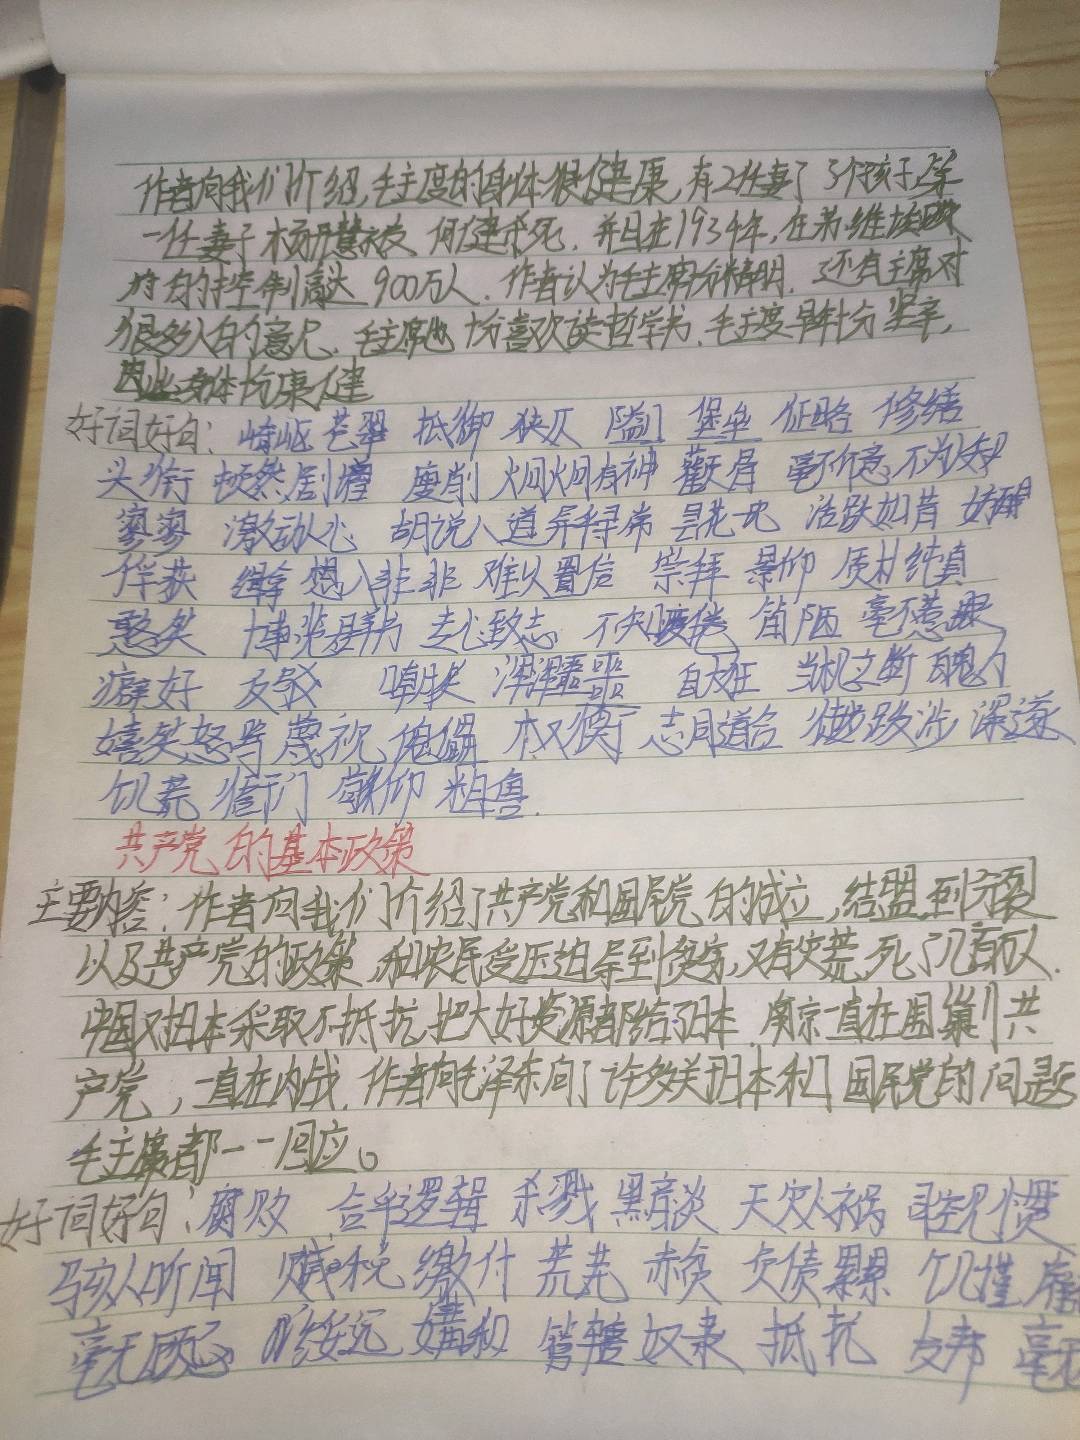 作者向我们介绍,毛主度的身体很健康,有2任妻了3个孩子,第
一任妻子杨开慧被 何健杀死,并且在1934年,在苏维埃政
府的控制高达900万人.作者认为毛主席分精明.还有主席对
很多人的意见.毛主席也十分喜欢读哲学书.毛主度早年十分坚辛,
因此身体十分康健
好词好句: 崎岖 苍翠 抵御 狭仄 隘门 堡垒 征略 修缮
头衔 顿然剧增 瘦削 炯炯有神 颧骨 毫不介意 不为人知
寥寥 激动人心 胡说八道 异乎寻常 昙花一现 活跃如昔
俘获 缉拿 想入非非 难以置信 崇拜 景仰 质朴纯真
憨笑 博览群书 专心致志 不知疲倦 简陋 毫不惹眼
癖好 反驳 嘲笑 深深噩噩 自大狂 当机立断
嬉笑怒骂 蔑视 傀儡 权衡 志同道合 徒步跋涉 深邃
饥荒 衙门 敬仰 粗鲁.
共产党的基本政策
主要内容:作者向我们介绍了共产党和国民党的成立,结盟到分裂
以及共产党的政策,和农民受压迫导到贫穷,又有灾荒,死了几百万人.
中国对日本采取不抵抗,把大好资源都给了日本.南京一直在围巢共
产党,一直在内战.作者向毛泽东问了许多关于日本和国民党的问题
毛主席都一一回应。
好词好句:腐败 合乎逻辑 杀戮 黑暗 天灾人祸 司空见惯
骇人听闻 赋税 缴付 荒芜 赤贫 欠债累累 饥馑
毫无顾忌 绥远 媾和 管辖 奴隶 抵抗 友邦 毫无